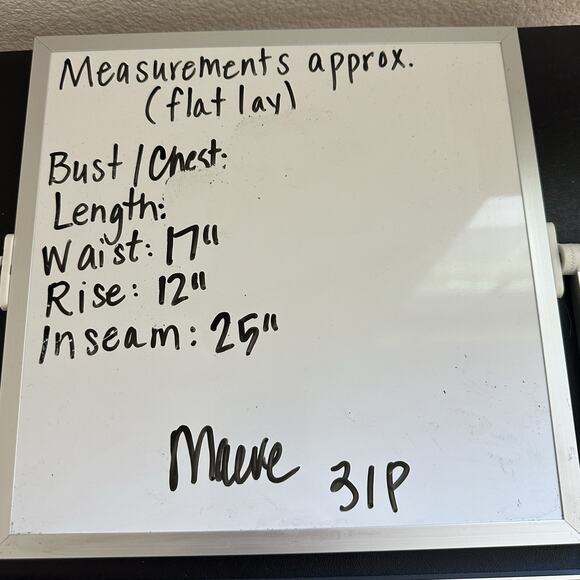 Measurements approx.
(flat lay)
Bust/Chest:
Length:
Waist: 17"
Rise: 12"
Inseam: 25"
Maeve 31P